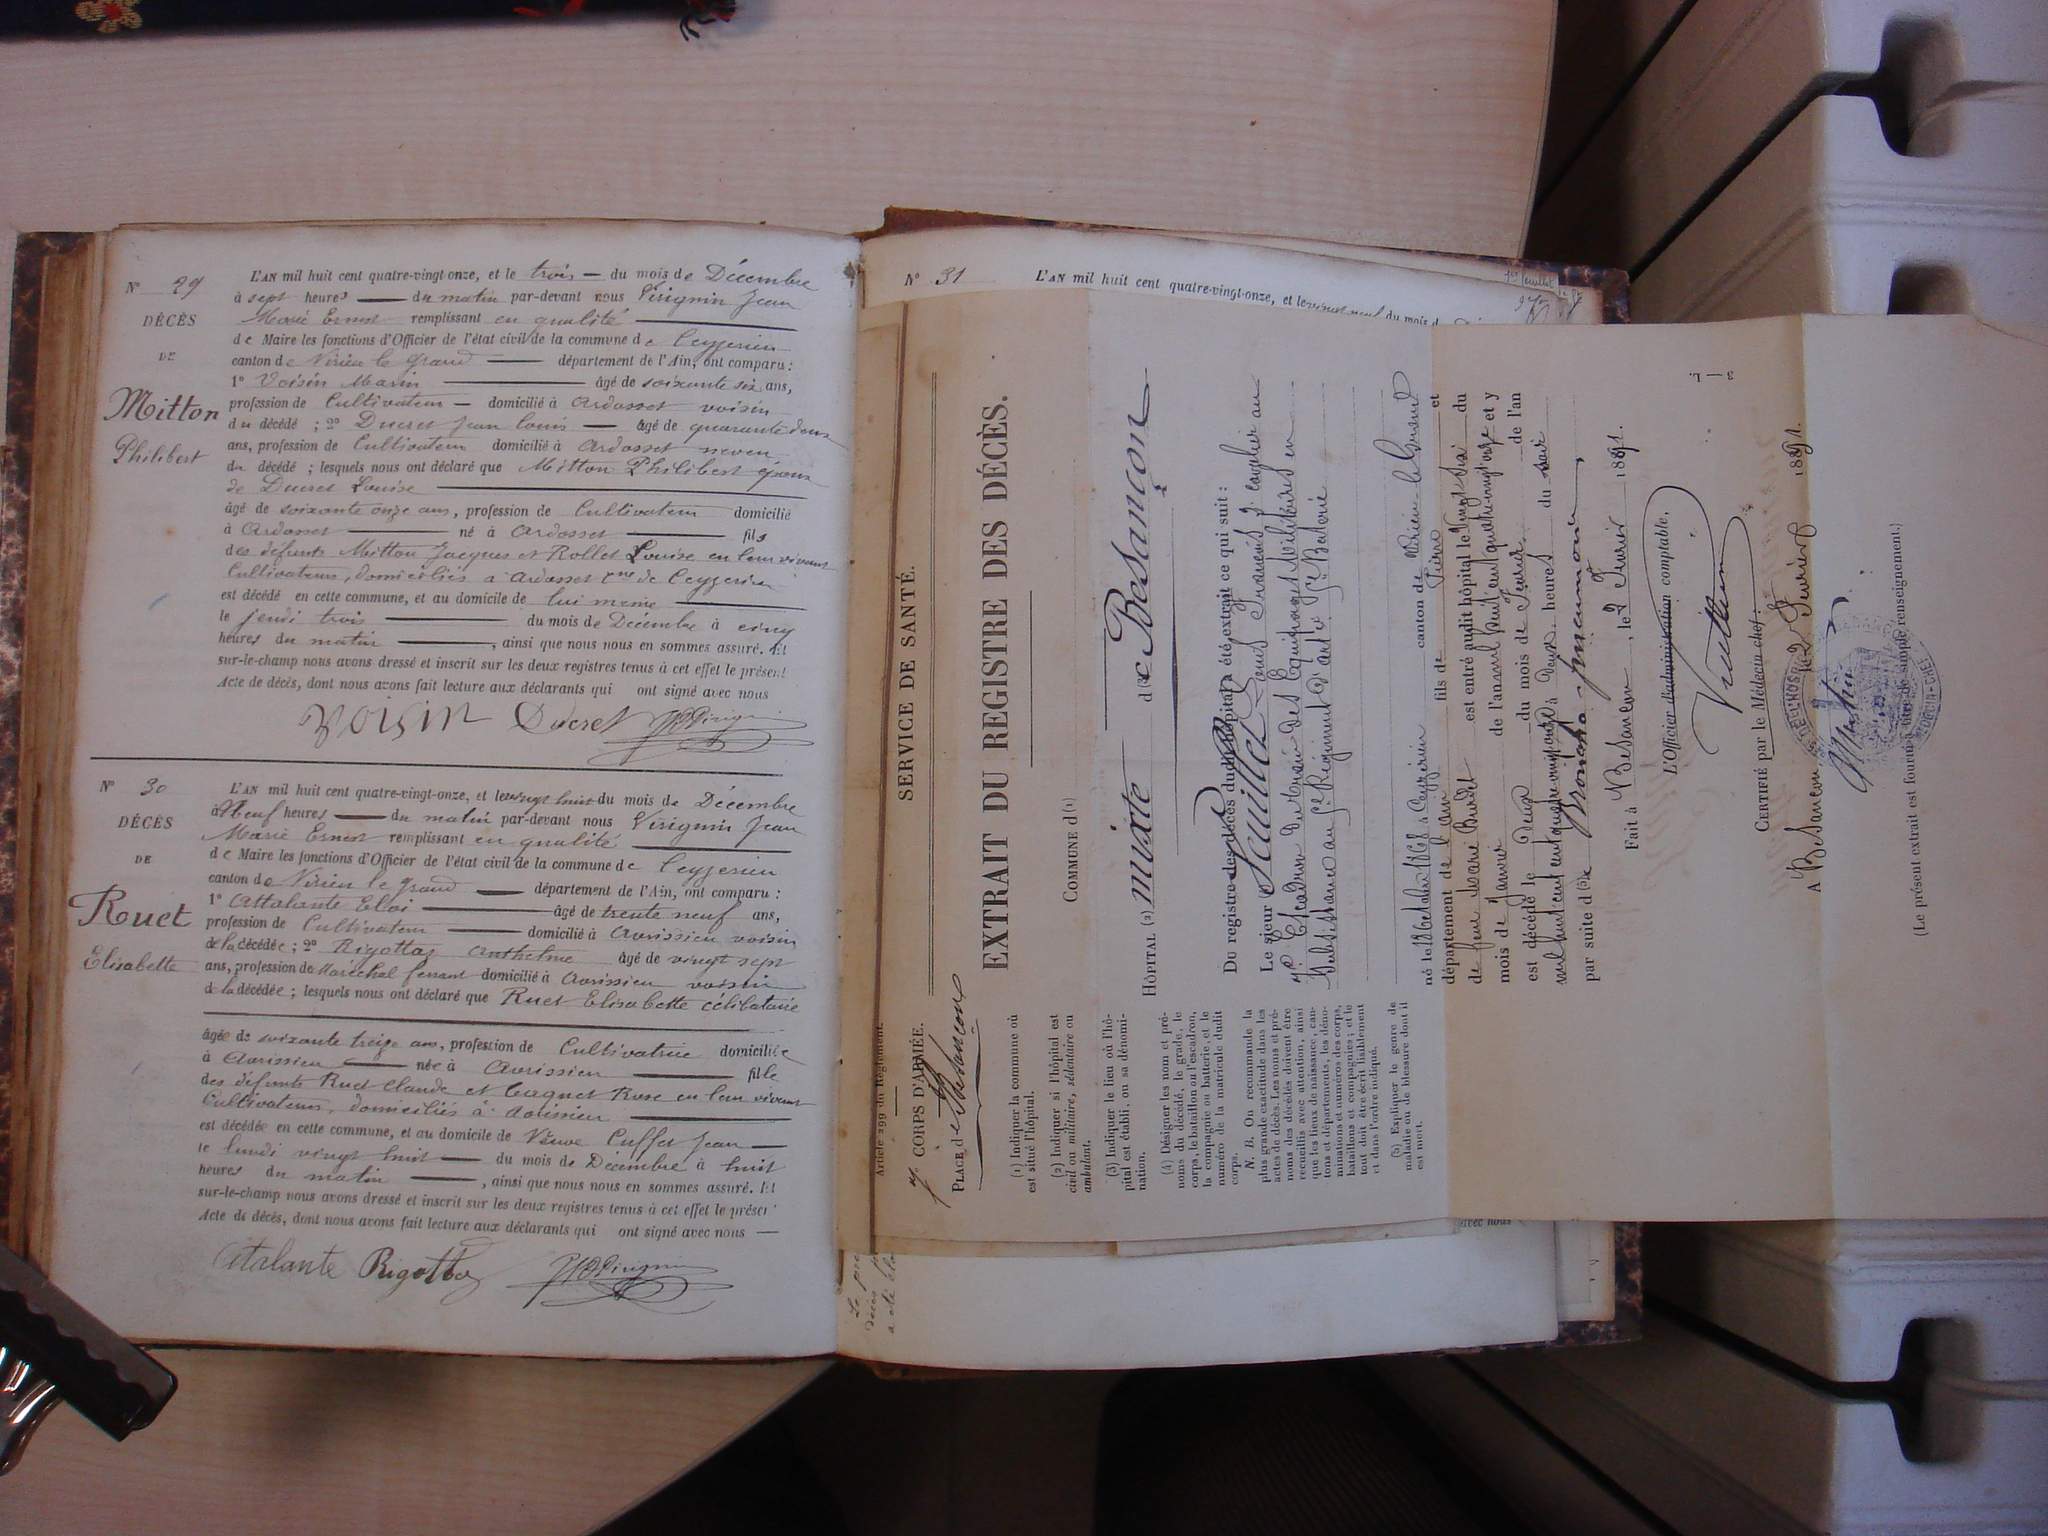 N° 29
DÉCÈS
DE
Mitton
Philibert
L'AN mil huit cent quatre-vingt-onze, et le trois — du mois de Décembre
à sept heures — du matin par-devant nous Virignin Jean
Marie Ernest remplissant en qualité
de Maire les fonctions d'Officier de l'état civil de la commune de Ceyzerieu
canton de Virieu le Grand — département de l'Ain, ont comparu :
1° Voisin Marin — âgé de soixante six ans,
profession de Cultivateur — domicilié à Ardosset voisin
du décédé ; 2° Ducret Jean Louis — âgé de quarante deux
ans, profession de Cultivateur domicilié à Ardosset neveu
du décédé ; lesquels nous ont déclaré que Mitton Philibert époux
de Ducret Louise
âgé de soixante onze ans, profession de Cultivateur domicilié
à Ardosset — né à Ardosset — fils
des défunts Mitton Jacques et Rollet Louise en leur vivant
Cultivateurs, domiciliés à Ardosset cne de Ceyzerieu
est décédé en cette commune, et au domicile de lui même
le jeudi trois — du mois de Décembre à cinq
heures du matin —, ainsi que nous nous en sommes assuré. Et
sur-le-champ nous avons dressé et inscrit sur les deux registres tenus à cet effet le présent
Acte de décès, dont nous avons fait lecture aux déclarants qui ont signé avec nous
VOISIN Ducret
N° 30
DÉCÈS
DE
Ruet
Elisabette
L'AN mil huit cent quatre-vingt-onze, et le vingt huit du mois de Décembre
à Neuf heures — du matin par-devant nous Virignin Jean
Marie Ernest remplissant en qualité
de Maire les fonctions d'Officier de l'état civil de la commune de Ceyzerieu
canton de Virieu le Grand — département de l'Ain, ont comparu :
1° Attalante Eloi — âgé de trente neuf ans,
profession de Cultivateur — domicilié à Avrissieu voisin
de la décédée ; 2° Rigottaz Anthelme âgé de vingt sept
ans, profession de Maréchal ferrant domicilié à Avrissieu voisin
de la décédée ; lesquels nous ont déclaré que Ruet Elisabette célibataire
âgée de soixante treize ans, profession de Cultivatrice domiciliée
à Avrissieu — née à Avrissieu — fille
des défunts Ruet Claude et Cagnet Rose en leur vivant
Cultivateurs, domiciliés à Avrissieu
est décédée en cette commune, et au domicile de Veuve Cuffet Jean —
le lundi vingt huit — du mois de Décembre à huit
heures du matin —, ainsi que nous nous en sommes assuré. Et
sur-le-champ nous avons dressé et inscrit sur les deux registres tenus à cet effet le présent
Acte de décès, dont nous avons fait lecture aux déclarants qui ont signé avec nous —
Atalante Rigottaz
N° 31
L'AN mil huit cent quatre-vingt-onze, et le vingt neuf du mois d
Article 299 du Règlement.
7e CORPS D'ARMÉE.
PLACE de Besançon
(1) Indiquer la commune où
est situé l'hôpital.
(2) Indiquer si l'hôpital est
civil ou militaire, sédentaire ou
ambulant.
(3) Indiquer le lieu où l'hô-
pital est établi, ou sa dénomi-
nation.
(4) Désigner les nom et pré-
noms du décédé, le grade, le
corps, le bataillon ou l'escadron,
la compagnie ou batterie, et le
numéro de la matricule dudit
corps.
N. B. On recommande la
plus grande exactitude dans les
actes de décès. Les noms et pré-
noms des décédés doivent être
recueillis avec attention, ainsi
que les lieux de naissance, can-
tons et départements, les déno-
minations et numéros des corps,
bataillons et compagnies ; et le
tout doit être écrit lisiblement
et dans l'ordre indiqué.
(5) Expliquer le genre de
maladie ou de blessure dont il
est mort.
SERVICE DE SANTÉ.
EXTRAIT DU REGISTRE DES DÉCÈS.
COMMUNE d (1)
HÔPITAL (2) mixte d(3)e Besançon
Du registre des décès dudit hôpital a été extrait ce qui suit :
Le sieur (4) Feuillet Louis François 2e cavalier au
7e Escadron du train des Equipages Militaires en
Subsistance au 5e Régiment d'art.ie 5e Batterie
né le 18 Octobre 1868 à Ceyzerieu canton de Virieu-le-Grand
département de l'Ain fils de Pierre et
de feue Marie Burdet est entré audit hôpital le Vingt Six du
mois de Janvier de l'an mil huit cent quatre-vingt-onze et y
est décédé le Deux du mois de Février de l'an
mil huit cent quatre vingt onze à Deux heures du soir
par suite d(5)e Broncho pneumonie,
Fait à Besançon, le 2 Février 1891.
L'Officier d'administration comptable,
CERTIFIÉ par le Médecin chef :
A Besançon le 2 Février 1891.
MÉDECIN-CHEF
(Le présent extrait est fourni à titre de simple renseignement.)
3 — L.
avec nous